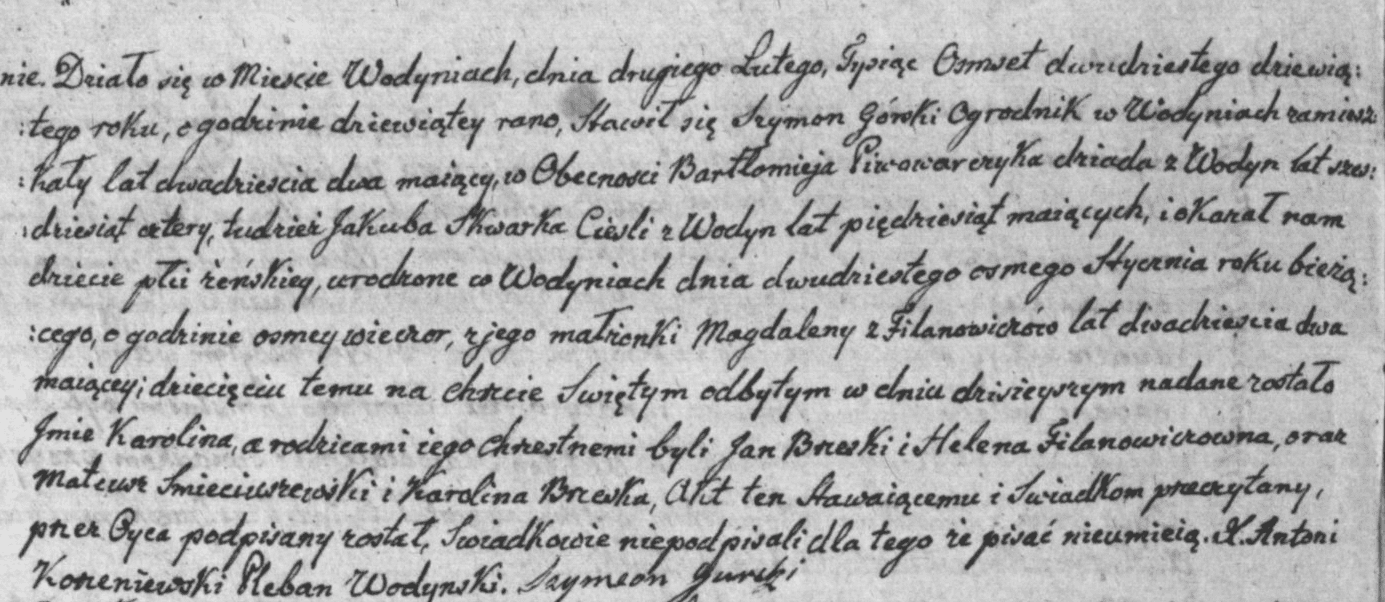 nie. Działo się w Mieście Wodyniach, dnia drugiego Lutego, Tysiąc Osmset dwudziestego dziewią:
:tego roku, o godzinie dziewiątey rano, Stawił się Szymon Górski Ogrodnik w Wodyniach zamiesz:
:kały lat dwadziescia dwa maiący, w Obecnosci Bartłomieja Piwowarczyka dziada z Wodyn lat szes:
:dziesiąt cztery, tudzież Jakuba Skwarka Cieśli z Wodyn lat pięćdziesiąt maiących, i okazał nam
dziecie płci żeńskiey, urodzone w Wodyniach dnia dwudziestego osmego Stycznia roku bieżą:
:cego, o godzinie osmey wieczor, z jego małżonki Magdaleny z Filanowiczów lat dwadziescia dwa
maiącey; dziecięciu temu na chrzcie Świętym odbytym w dniu dzisieyszym nadane zostało
Jmie Karolina, a rodzicami iego chrzestnemi byli Jan Brzeski i Helena Filanowiczowna, oraz
Mateusz Smieciuszewski i Karolina Brzeska, Akt ten Stawaiącemu i Swiadkom przeczytany,
przez Oyca podpisany został, Swiadkowie niepodpisali dla tego że pisać nieumieią. X. Antoni
Korzeniewski Pleban Wodynski. Szymeon Gurski